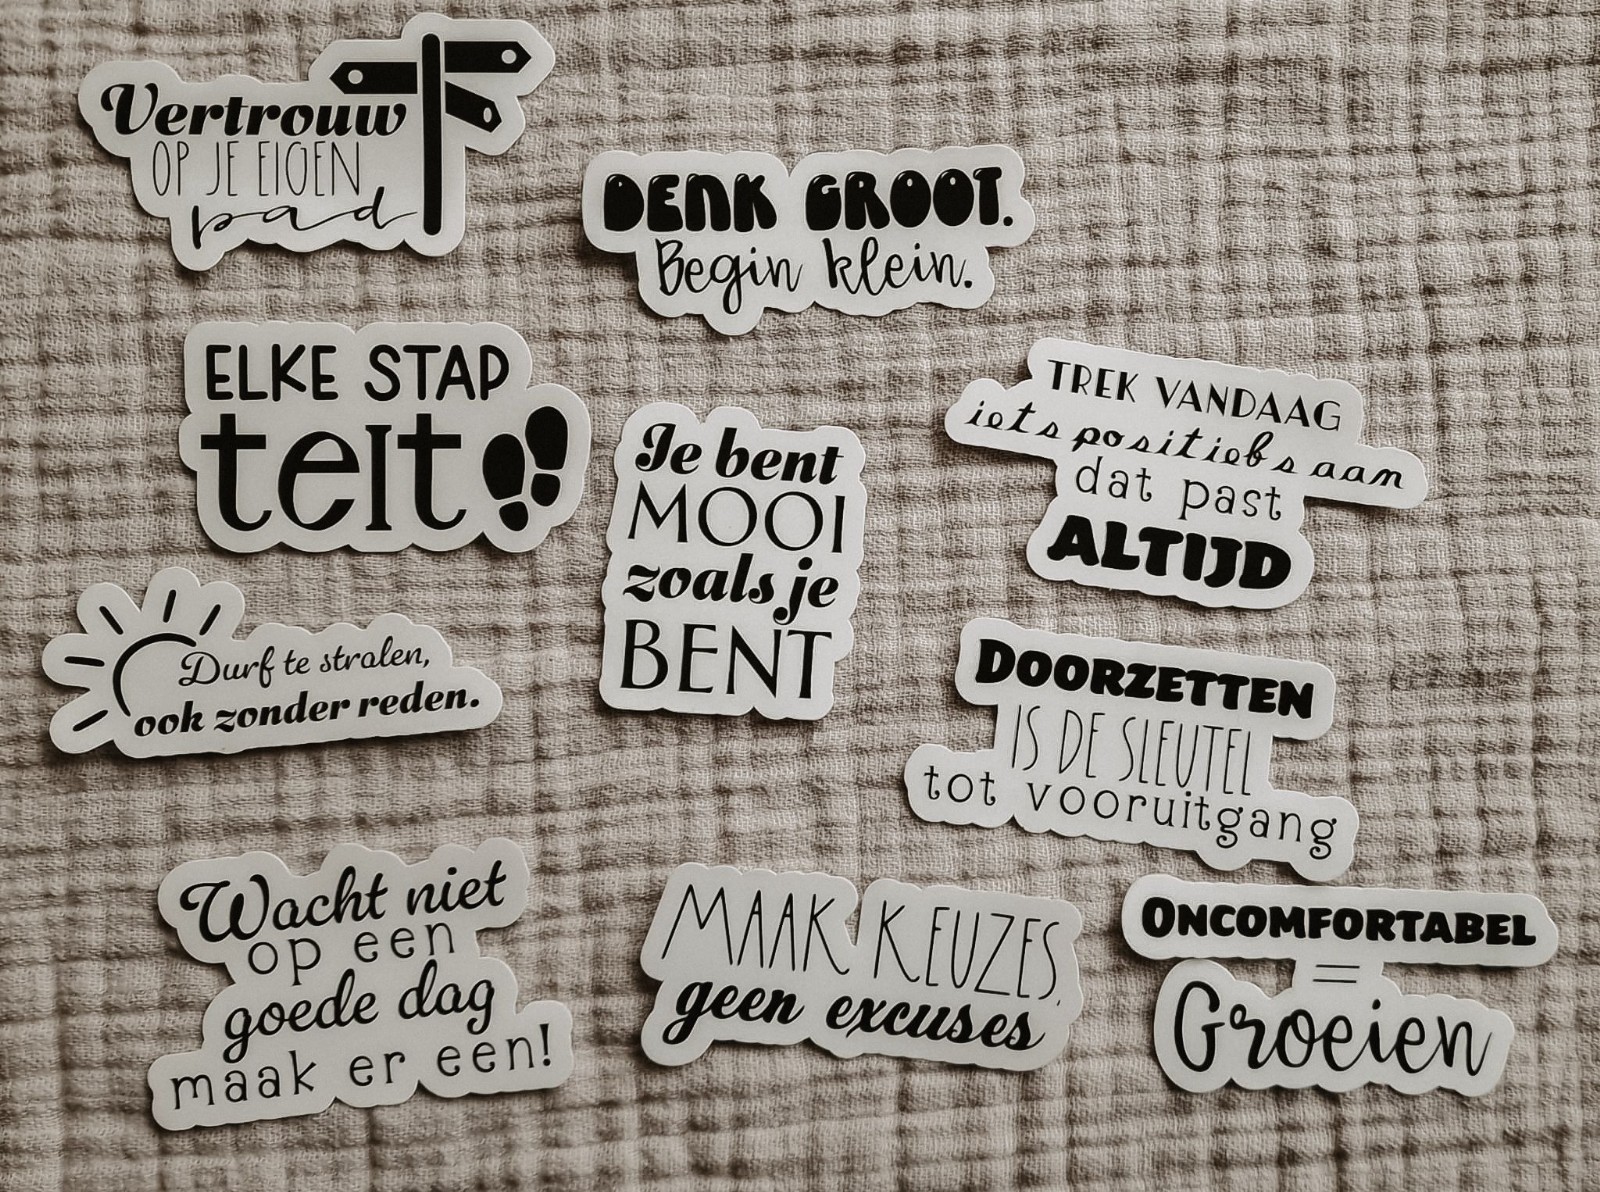 Vertrouw
OP JE EIGEN
pad
DENK GROOT.
Begin klein.
ELKE STAP
telt
Je bent
MOOI
zoals je
BENT
TREK VANDAAG
iets positiefs aan
dat past
ALTIJD
Durf te stralen,
ook zonder reden.
DOORZETTEN
IS DE SLEUTEL
tot vooruitgang
Wacht niet
op een
goede dag
maak er een!
MAAK KEUZES,
geen excuses
ONCOMFORTABEL
=
Groeien